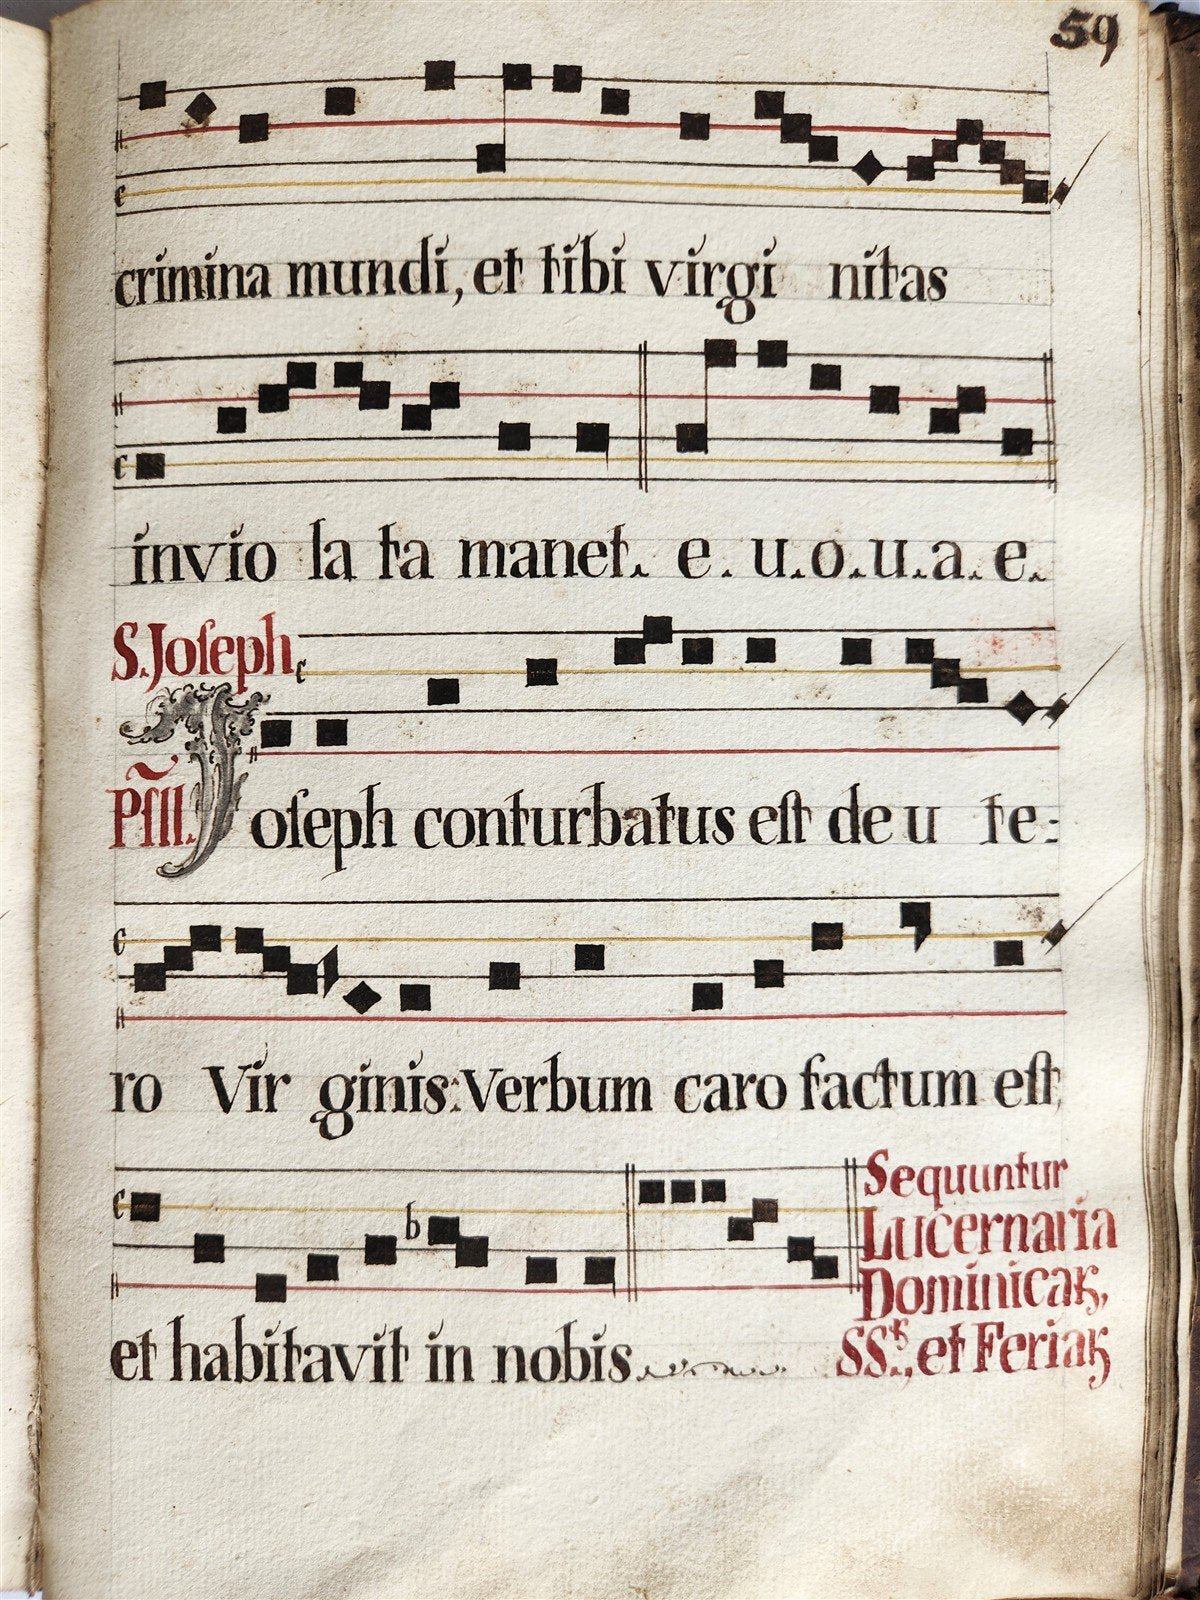 59
crimina mundi, et tibi virgi nitas
invio la ta manet. e. u. o. u. a. e.
S. Joſeph
Pſll. Joſeph conturbatus eſt de u te:
ro Vir ginis: Verbum caro factum eſt,
et habitavit in nobis
Sequuntur
Lucernaria
Dominicaꝝ,
SS.ꝝ, et Feriaꝝ